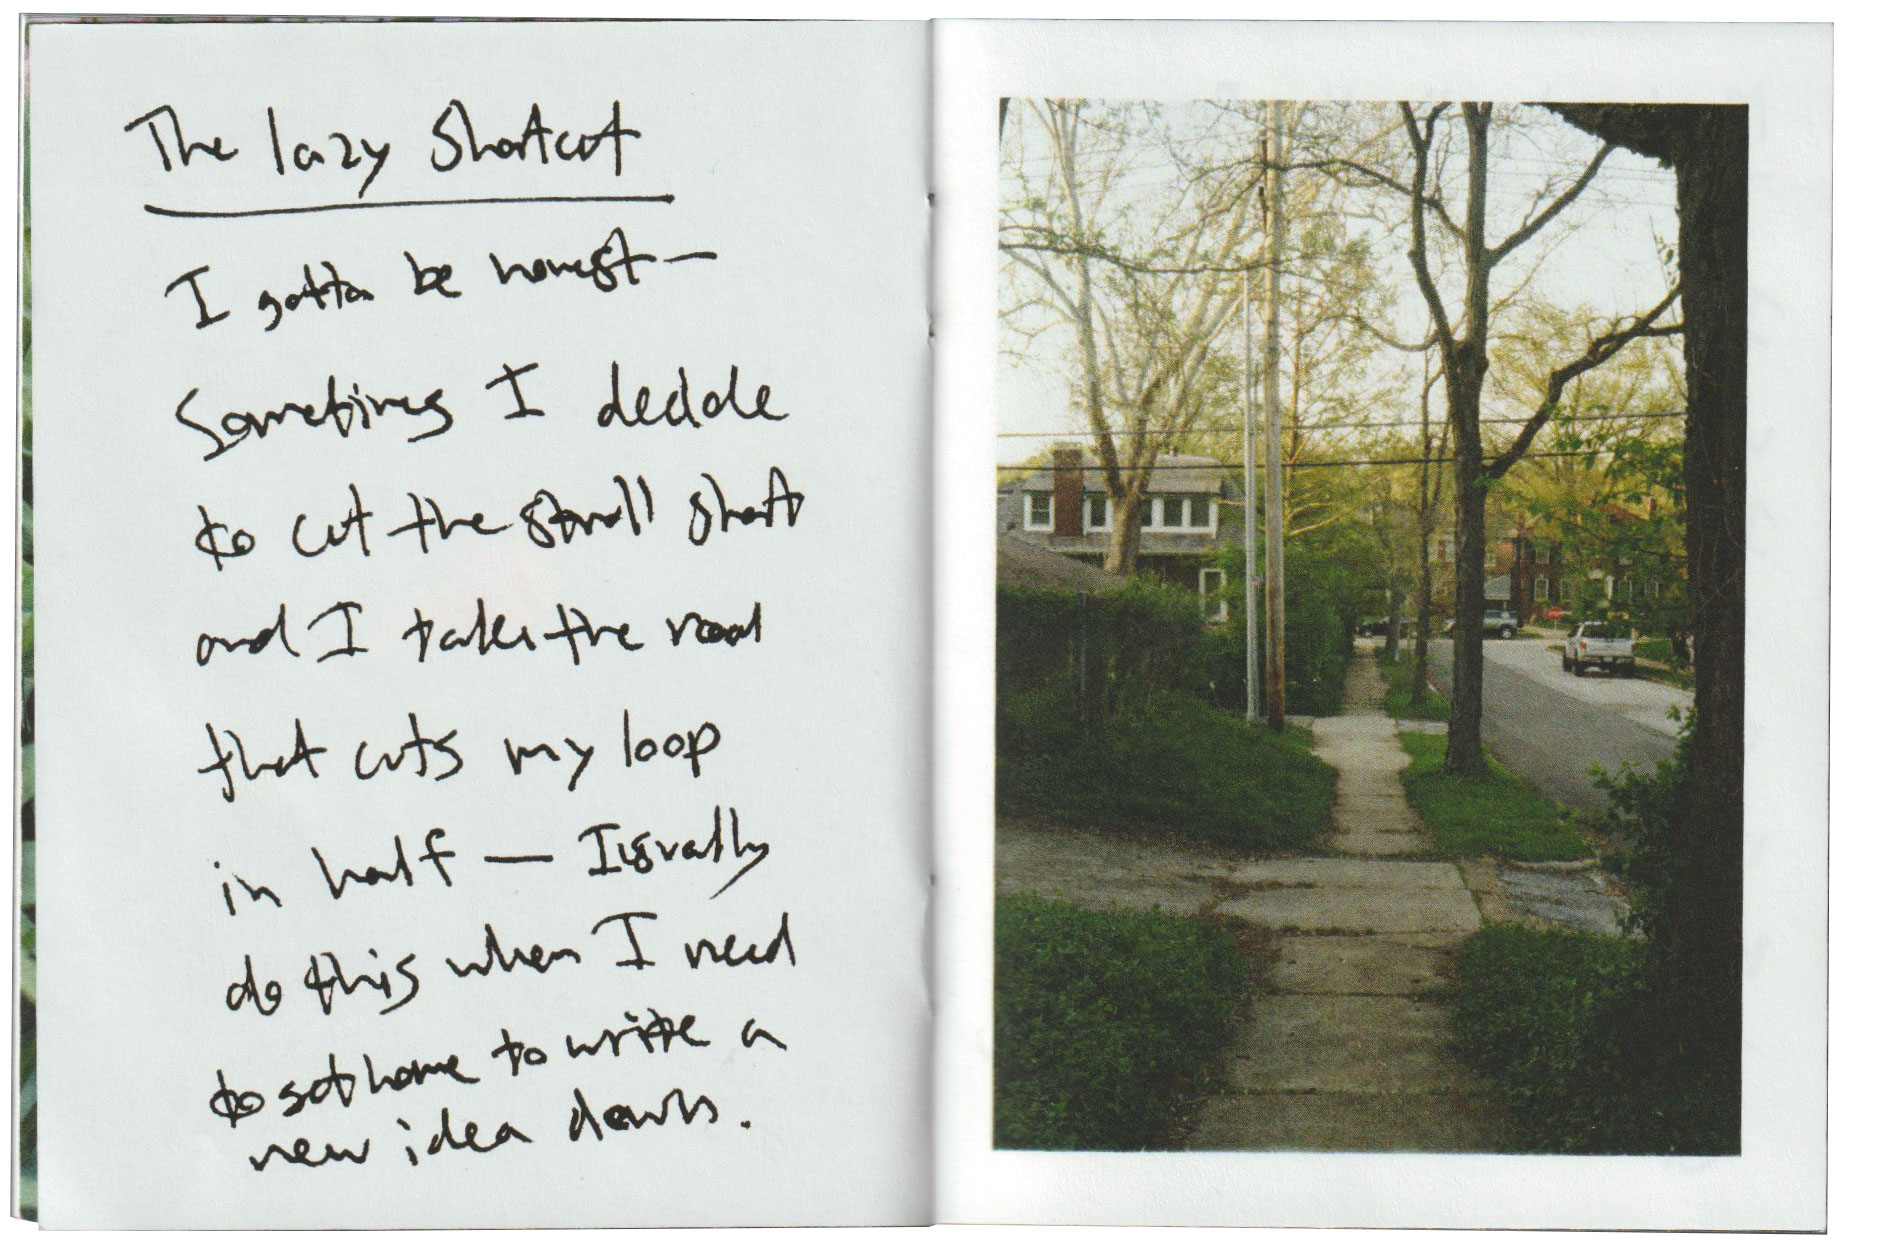 The lazy Shortcut
I gotta be honest—
Sometimes I decide
to cut the stroll short
and I take the road
that cuts my loop
in half — I usually
do this when I need
to get home to write a
new idea down.